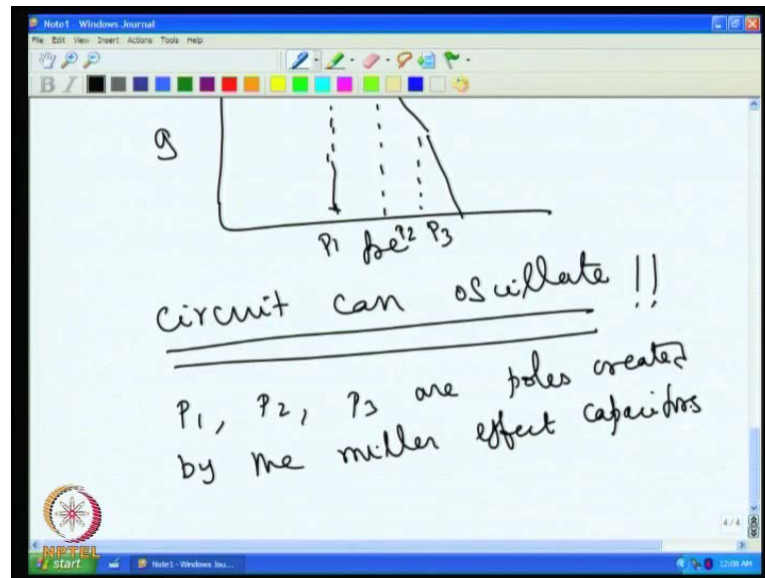 Note1 - Windows Journal
File Edit View Insert Actions Tools Help
B I
g
P1 P2 P3
circuit can oscillate !!
P1, P2, P3 are poles created
by the miller effect capacitors
4/4
NPTEL
start
Note1 - Windows Jou...
12:08 AM